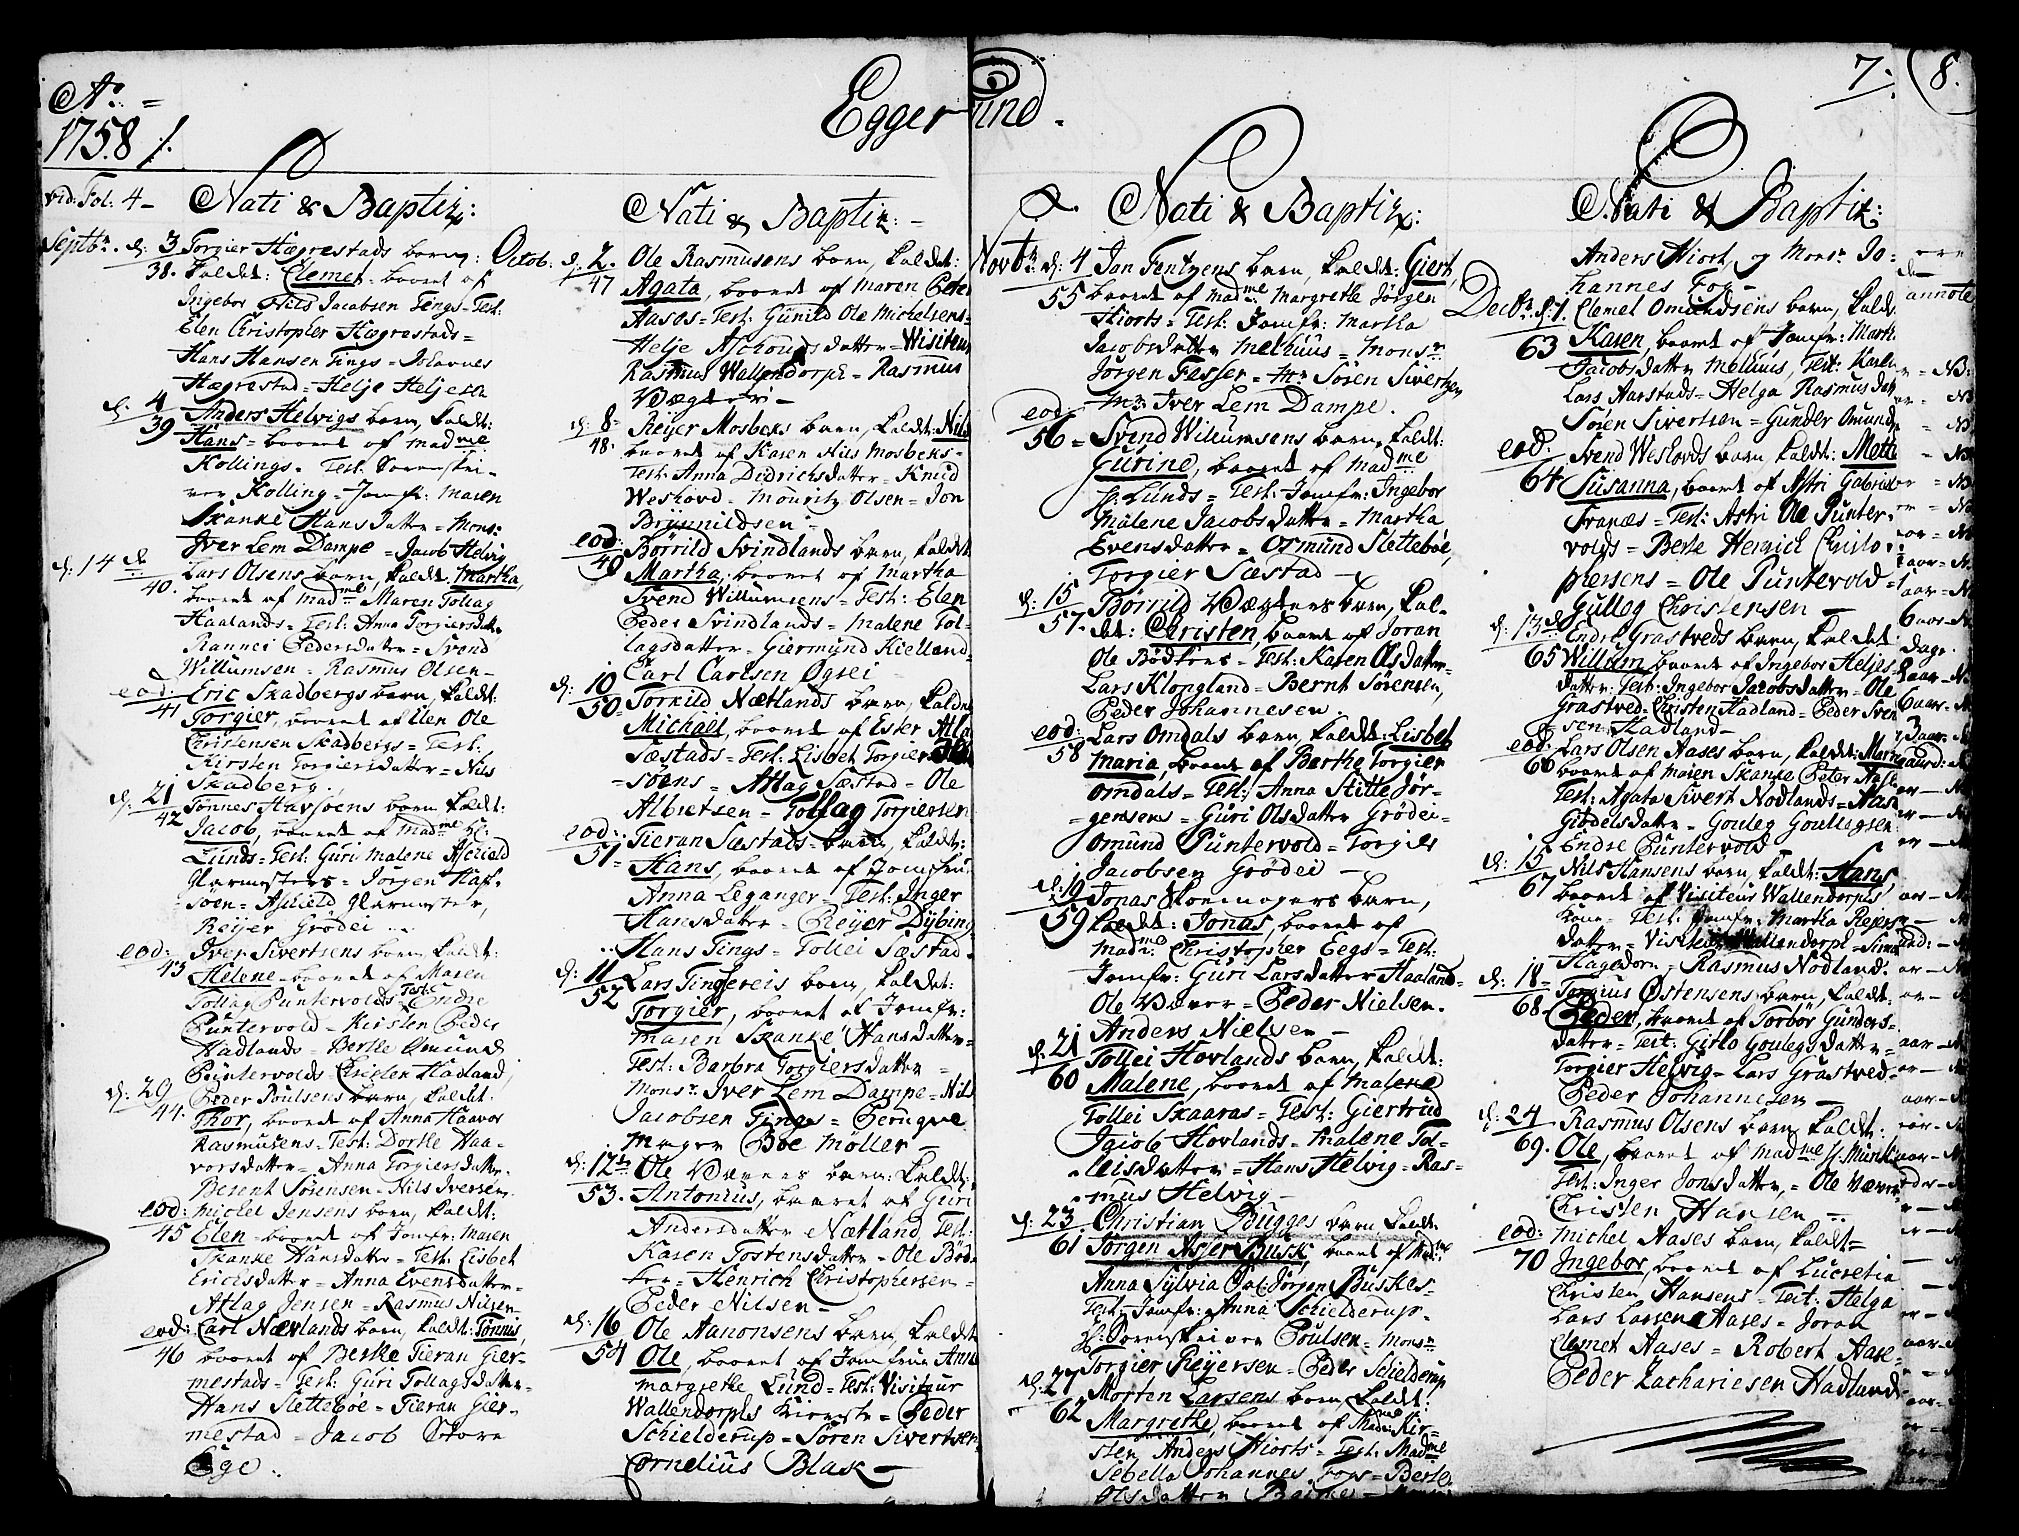 Ao =
1758 /.
Eggersund.
7. 8.
vid: Fol: 4 -
Nati & Baptiz:
Septbr. d: 3 Torgier Hægrestads barn,
38. kaldt: Clemet. baaret af
Ingebor Nils Jacobsen Tengs - Test:
Elen Christopher Hægrestads =
Hans Hansen Tings =
Hægrestad = Helje Heljesen
d. 4 Anders Helvigs barn, kaldt:
39 Hans = baaret af madme
Kollings. Test. Sorenskri-
ver Kolling = Jomfr: Maren
Skanke Hans datter = Mons:
Jver Lem Dampe = Jacob Helvig
d: 14 de Lars Olsens barn, kaldt. Martha,
40. baaret af madme Maren Tollag
Haalands = Test: Anna Torgiersdatter
Rannei Pedersdatter = Svend
Willumsen = Rasmus Olsen -
eod: Eric Skadbergs barn, kaldt:
41 Torgier, baaret af Elen Ole
Christensen Skadbergs = Test:
Kirsten Torgiersdatter = Nils
Skadberg.
d. 21 Tønnes Havsøens barn kaldt:
42 Jacob, baaret af madme Hr:
Lunds = Test: Guri Malene
Glarmesters = Jørgen Haf-
søen = Glarmester,
Reijer Grödei
eod: Jver Sivertsens barn kaldt:
43 Helene = baaret af Maren
Tollag Puntervolds Test: Endre
Puntervold = Kirsten Peder
Hadlands = Berthe Omund
Puntervolds = Christen Hadland,
d: 29 Peder Poulsens barn, kaldt.
44. Thor, baaret af Anna Haavor
Rasmusens = Test: Dorthe Haa-
vorsdatter = Anna Torgiersdatter.
Berent Sørensen = Nils Iversen.
eod: Michel Jensens barn, kaldt:
45 Elen = baaret af Jomfr: Maren
Skanke Hansdatter = Test: Lisbet
Ericksdatter = Anna Evensdatter =
Atlag Jensen = Rasmus Nilsen -
eod: Carl Nævlands barn, kaldt: Tønnis,
46 baaret af Berthe Tieran Gier-
mestads = Test: Guri Tollagsdatter =
Hans Slettebøe = Tieran Gier-
mestad = Jacob Store
Ege.
Nati & Baptiz: -
Octob: d: 2. Ole Rasmusens barn, kaldt:
47 Agata, baaret af Maren Peter
Aases = Test: Gunild Ole Mickelsens =
Helje datter = Visiteur
Rasmus Wallendorph = Rasmus
Vægter -
d: 8 Reijer Mosbeks barn, kaldt: Nils
48. baaret af Karen Nils Mosbeks =
Test: Anna Didrichsdatter = Knud
Weshovd = Mouritz Olsen = Jon
Brynnildsen =
eod: Børrild Svindlands barn, kaldt
49 Martha, baaret af Martha
Svend Willumsens = Test: Elen
Peder Svindlands = Malene Tol-
lagsdatter = Giermund Kielland =
Carl Carlsen Øgrei
d: 10 Torkild Nætlands barn, kaldt
50 Michael, baaret af Ester Atlag
Sæstads = Test: Lisbet Torgier
= søens = Atlag Sæstad = Ole
Albretsen = Tollag Torgiersen
eod: Tieran Sæstads = barn, kaldt:
51 Hans, baaret af Jomfru
Anna Leganger = Test: Inger
Hansdatter = Reijer Dybing
Hans Tings = Tollei Sæstad.
d: 11 Lars Tingereis barn, kaldt:
52 Torgier, baaret af Jomfr:
Maren Skanke Hansdatter =
Test: Barbra Torgiersdatter =
Monsr. Jver Lem Dampe = Nils
Jacobsen Tings =
mager Boe Møller -
d: 12te Ole Væners barn: kaldt:
53. Antonius, baaret af Guri
Andersdatter Nætland, Test:
Karen Tostensdatter = Ole Bød-
ker = Henrich Christophersen =
Peder Nilsen -
d: 16 Ole Aanonsens barn, kaldt
54 Ole, baaret af Jomfrue Anne
Margrethe Lund = Test: Visiteur
Wallendorphs Kieriste = Peder
Schielderup = Søren Sivertsen
Cornelius Blask -
Nati & Baptiz:
Novbr: d: 4 Jan Tentzens barn, kaldt: Giert,
55 baaret af madme Margrethe Jørgen
Hiorts = Test: Jomfr: Martha
Jacobsdatter Melhuus = Monsr.
Jørgen Fesser = Mr Søren Sivertzen
Mr: Jver Lem Dampe.
eod. Svend Willumsens barn, kaldt:
56 = Gurine, baaret af madme
Hr: Lunds = Test: Jomfr: Ingebor
Malene Jacobsdatter = Martha
Evensdatter = Osmund Slettebøe,
Torgier Sæstad -
d: 15 Børrild Vægters barn, kal-
57. det: Christen, baaret af Joran
Ole Bødkers = Test: Karen Olsdatter =
Lars Klongland = Bernt Sørensen,
Peder Johannesen.
eod: Lars Omdals barn, kaldt: Lisbet
58 Maria, baaret af Berthe Torgier
Omdals = Test: Anna Sitte Jør-
= gensens = Guri Olsdatter Grödei =
Omund Puntervold = Torgiels
Jacobsen Grödei -
d: 19 Jonas Skoemagers barn,
59 kaldt: Jonas, baaret af
Madme Christopher Eegs = Test:
Jomfr: Guri Larsdatter Haaland =
Ole Væver = Peder Nielsen.
Anders Nielsen -
d. 21 Tollei Hovlands barn, kaldt:
60 Malene, baaret af Malene
Tollei Skaaras = Test: Giertrud
Jacob Hovlands = Malene Tol-
= leisdatter = Hans Helvig = Ras-
= mus Helvig -
d: 23 Christian Bugges barn kaldt.
61 Jørgen Asjer Busk, baaret af Madme
Anna Sylvia Sal: Jørgen Buskes =
Test: Jomfr: Anna Schielderup =
Hr: Sorenskriver Poulsen = Monsr
Torgier Reijersen = Peder Schielderup
d. 27 Morten Larsens barn, kaldt:
62 Margrethe, baaret af Madme Kir-
sten Anders Hiorts = Test: Madme
Sebella Johannes Fogs = Berthe
Olsdatter
Nati & Baptiz:
Anders Hiort, og Monsr. Jo:
hannes Fog -
Decbr. d: 1. Clemet Omundsens barn, kaldt
63 Karen, baaret af Jomfr: Martha
Jacobsdatter Melhuus, Test: Karen
Lars Aarstads = Helga Rasmusdatter
Søren Sivertsen = Gunder Omunds
eod. Svend Weslovds barn kaldt: Mette
64 Susanna, baaret af Astri Gabriel
Tranæs = Test: Astri Ole Punter-
volds = Berte Henrich Christo-
phersens = Ole Puntervold =
Gulleg Christensen -
d: 13 de Endre Grastveds barn, kaldt
65 Willum baaret af Ingebor Heljes-
datter: Test: Ingebor Jacobsdatter = Ole
Grastved = Christen Hadland = Peder Sven
sen Hadland -
eod: Lars Olsen Aases barn, kaldt:
66 baaret af Maren Skanke Peter Aase
Test: Agata Sivert Nodlands = Aase
Giødelsdatter = Gouleg Goullegsen
Endre Puntervold
d: 15 Nils Hansens barn, kaldt: Hans,
67 baaret af Visiteus Wallendorphs
kone = Test: Jomfr: Martha Reiers
datter = Visiteur Wallendorph = Simon
Hagedorn = Rasmus Nodland.
d: 18 = Torgius Østensens barn, kaldt:
68. Peder, baaret af Torbor Gunders-
datter = Test: Gitlo Goulegsdatter =
Torgier Helvig = Lars Grastved =
Peder Johannesen -
d: 24 Rasmus Olsens barn, kaldt:
69. Ole, baaret af Madme Hr: Munk
Test: Inger Jonsdatter, = Ole Væver
Christen Hansen -
eod: Michel Aases barn, kaldt =
70 Ingebor, baaret af Lucretia
Christen Hansens = Test: Helga
Lars Larsen Aases = Joran
Clemet Aases = Robert Aase =
Peder Zachariesen Hadland